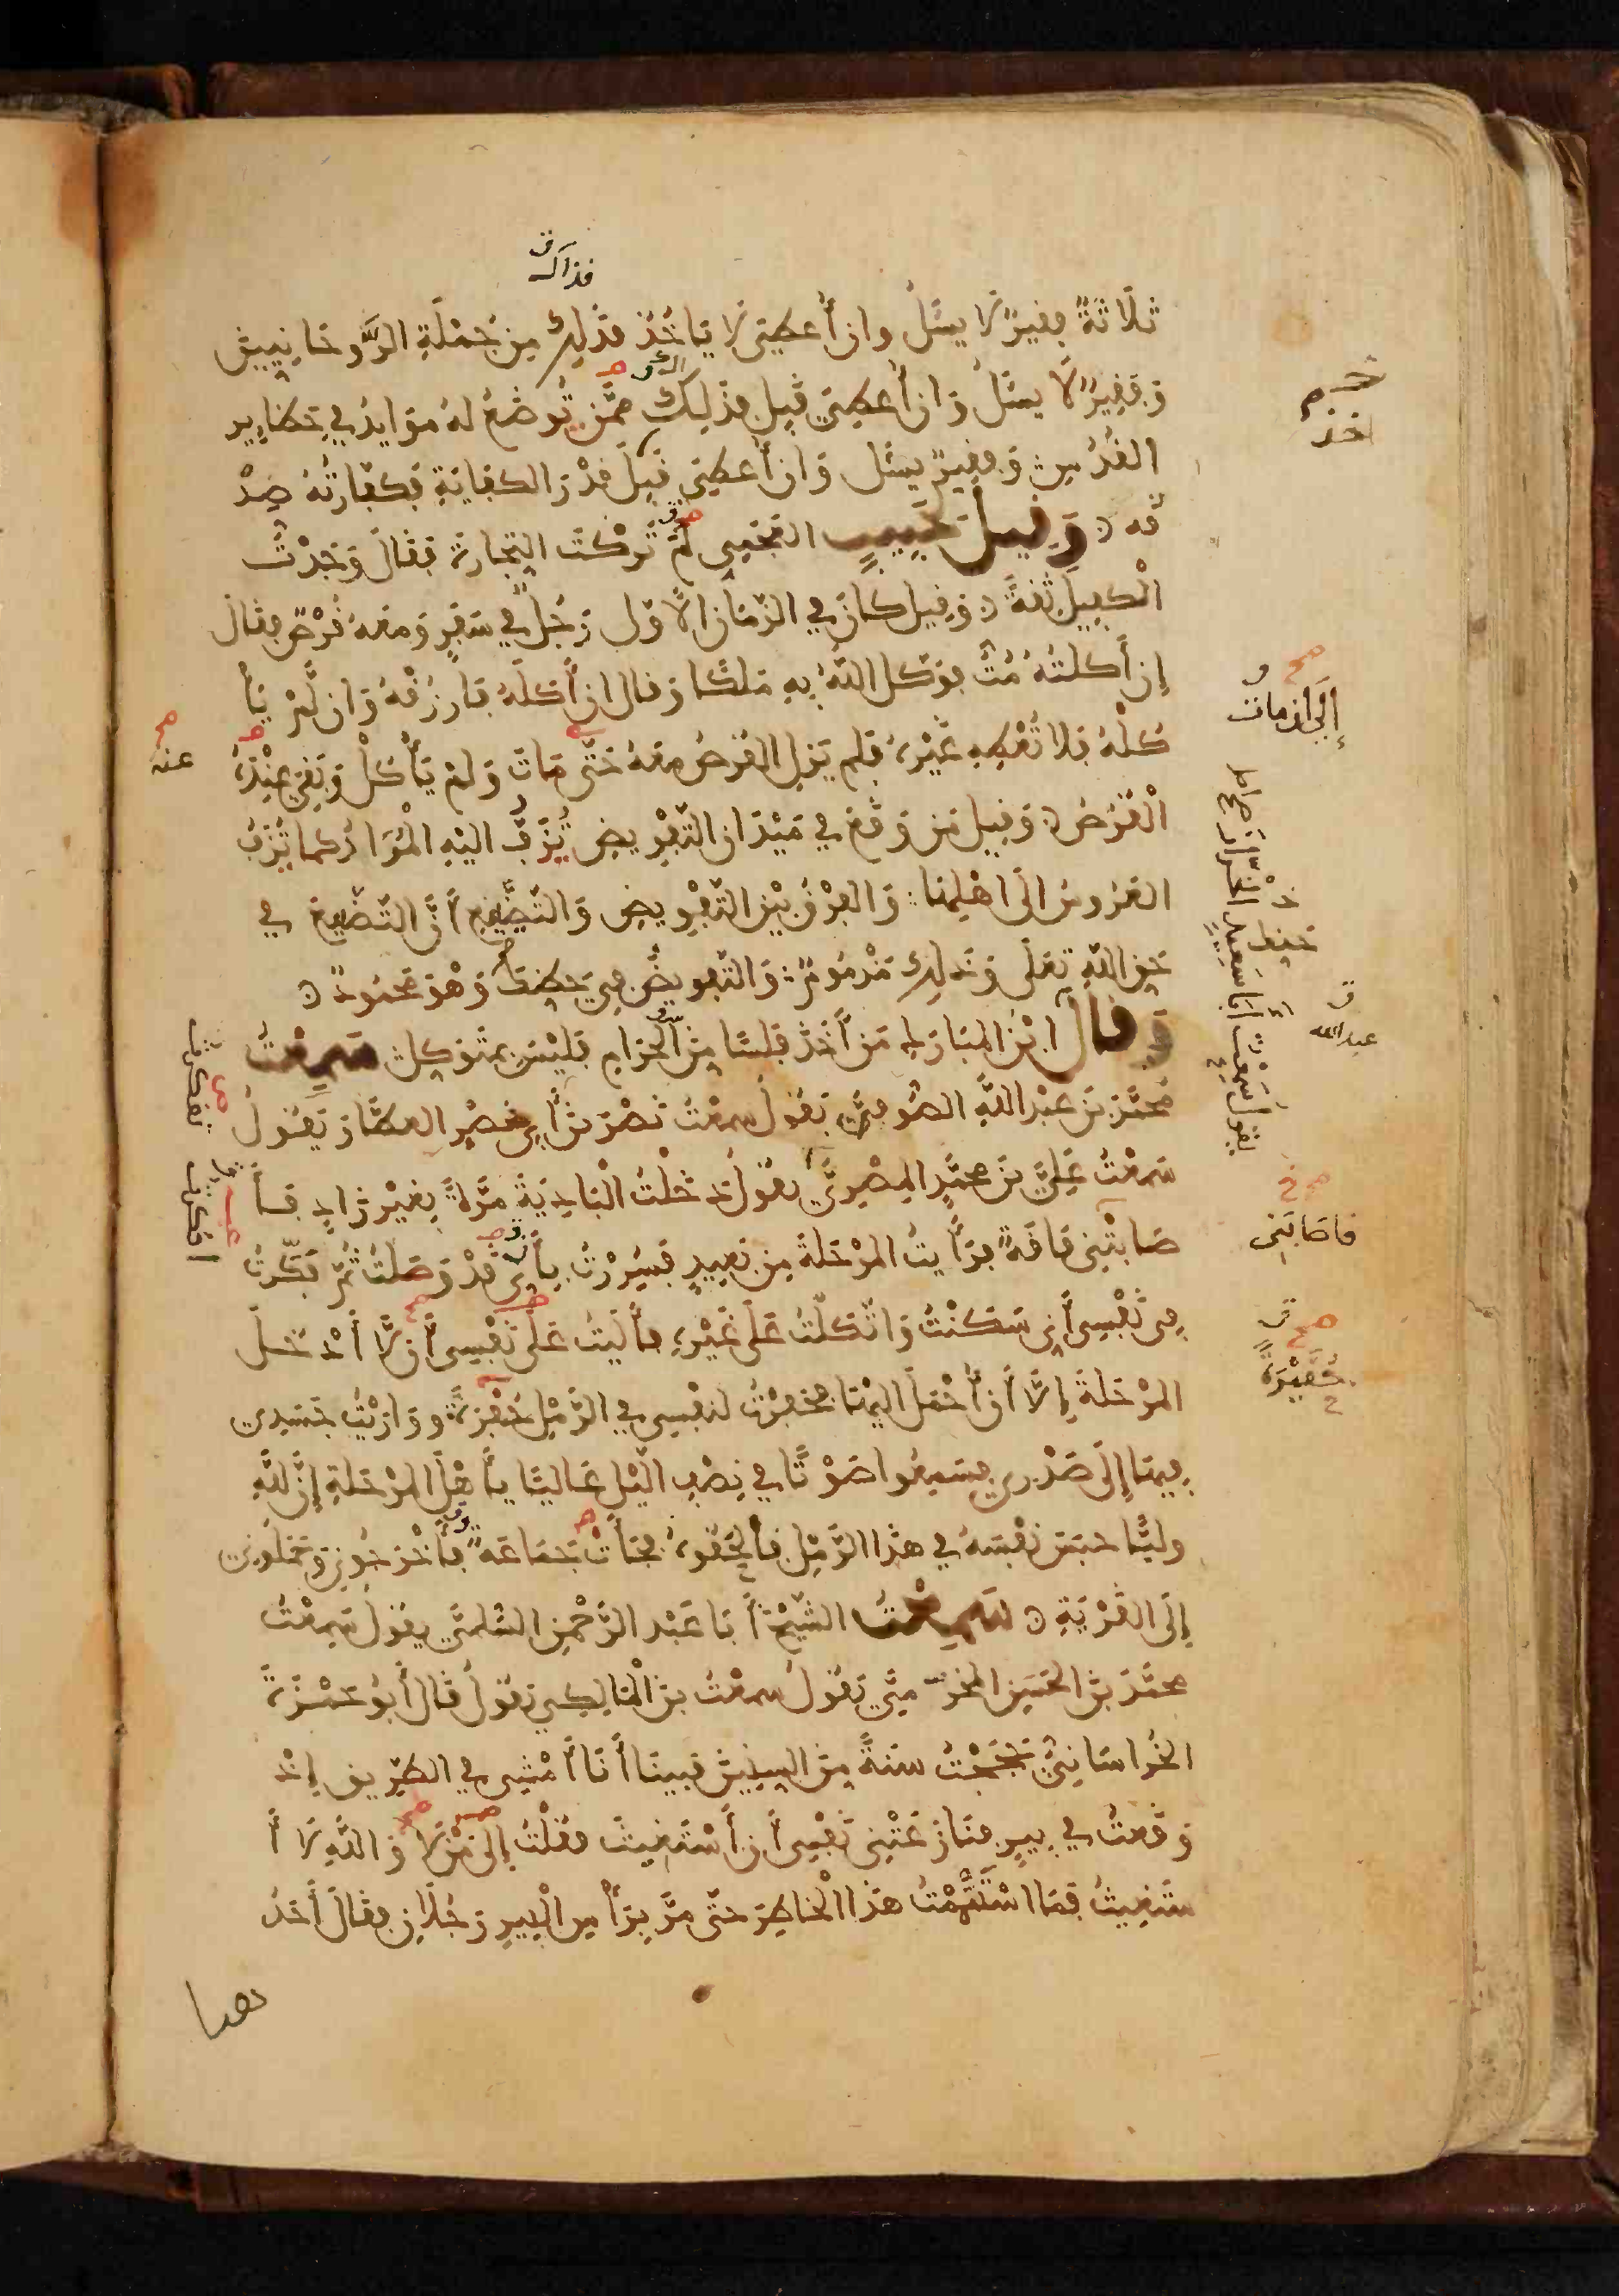 فذاك
ثلاثة فقير لا يسئل وان أعطي لا ياخذ فذلك من جملة الروحانيين
وفقير لا يسئل وان أعطي قبل فذلك ممن توضع له موايد في حظاير
القدس وفقير يسئل وان أعطي قبل قدر الكفاية فكفارته صد
قه وقيل لحبيب العجمي لم تركت التجارة فقال وجدت
الكفيل ثقة وقيل كان في الزمان الاول رجل في سفر ومعه قرص فقال
إن أكلته مت فوكل الله به ملكا وقال ان أكله فارزقه وان لم يأ
كله فلا تعطه غيره فلم يزل القرص معه حتى مات ولم يأكل وبقي عنده
القرص وقيل من وقع في ميدان التفويض يزف اليه المراد كما تزف
العروس الى اهلها والفرق بين التفويض والتضييع أن التضييع في
حق الله تعلى وذلك مذموم والتفويض في حظك وهو محمود
وقال ابن المبارك من أخذ فلسا من الحرام فليس بمتوكل سمعت
محمد بن عبد الله الصوفي يقول سمعت نصر بن أبي نصر العطار يقول
سمعت علي بن محمد المصري يقول دخلت البادية مرة بغير زاد فأ
صابتني فاقة فرأيت المرحلة من بعيد فسررت بأني قد وصلت ثم فكرت
في نفسي أني سكنت واتكلت على غيره فأليت على نفسي أن لا أدخل
المرحلة إلا أن أحمل اليها فحفرت لنفسي في الرمل حفرة وواريت جسدي
فيها إلى صدري فسمعوا صوتا في نصف الليل عاليا يأهل المرحلة إن لله
وليا حبس نفسه في هذا الرمل فألحقوه فجات جماعة فأخرجوني وحملوني
إلى القرية سمعت الشيخ أبا عبد الرحمن السلمي يقول سمعت
محمد بن الحسين المخرمي يقول سمعت بن المالكي يقول قال أبو حمزة
الخراساني حججت سنة من السنين فبينا أنا أمشي في الطريق إذ
وقعت في بير فنازعتني نفسي أن أستغيث فقلت لا والله لا أ
ستغيث فما استتممت هذا الخاطر حتى مر برأس البير رجلان فقال أحد
هما
خذ
إلى ان مات
عنه
يقول سمعت أبا سعيد الخراز
حفظ
عبد الله
تفكرت
افكرت
فاصابتني
حفيرة